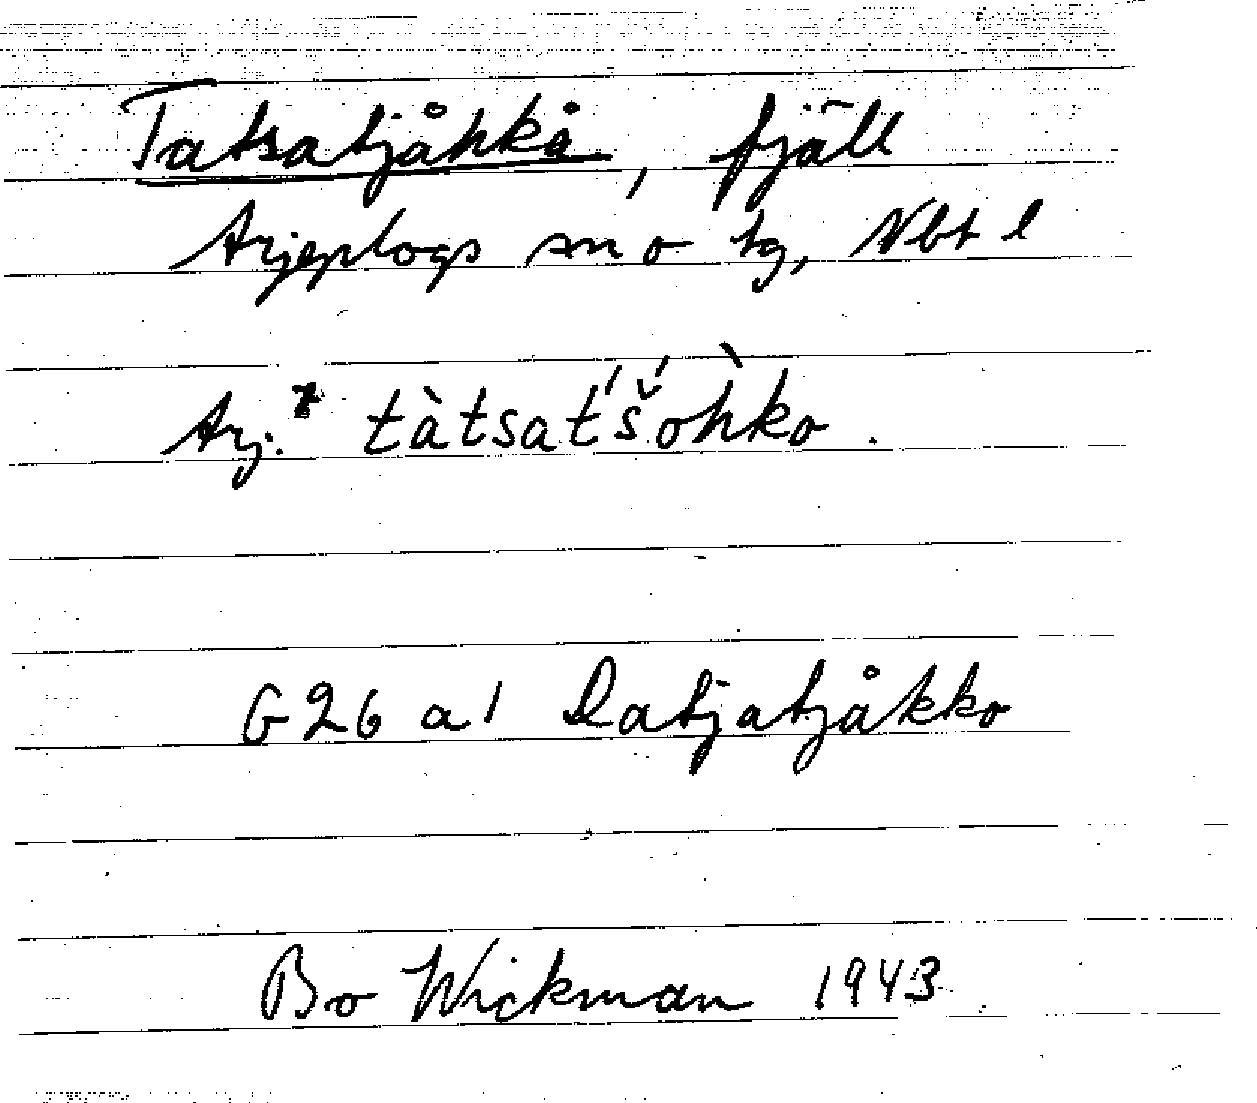 Tatsatjåhkå, fjäll
Arjeplogs sn o tg, Nbt l
Arj. tàtsat́š́oh̀ko.
G26 a1 Datjatjåkko
Bo Wickman 1943